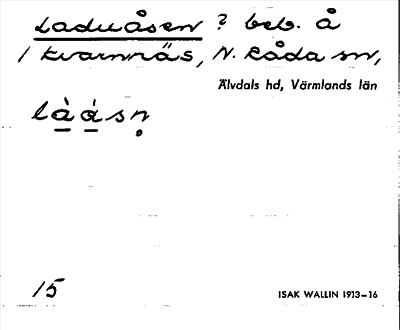 Laduåsen ? beb. å
1 kvarnnäs, N. Råda sn,
Älvdals hd, Värmlands län
là ásn̥
15
ISAK WALLIN 1913–16